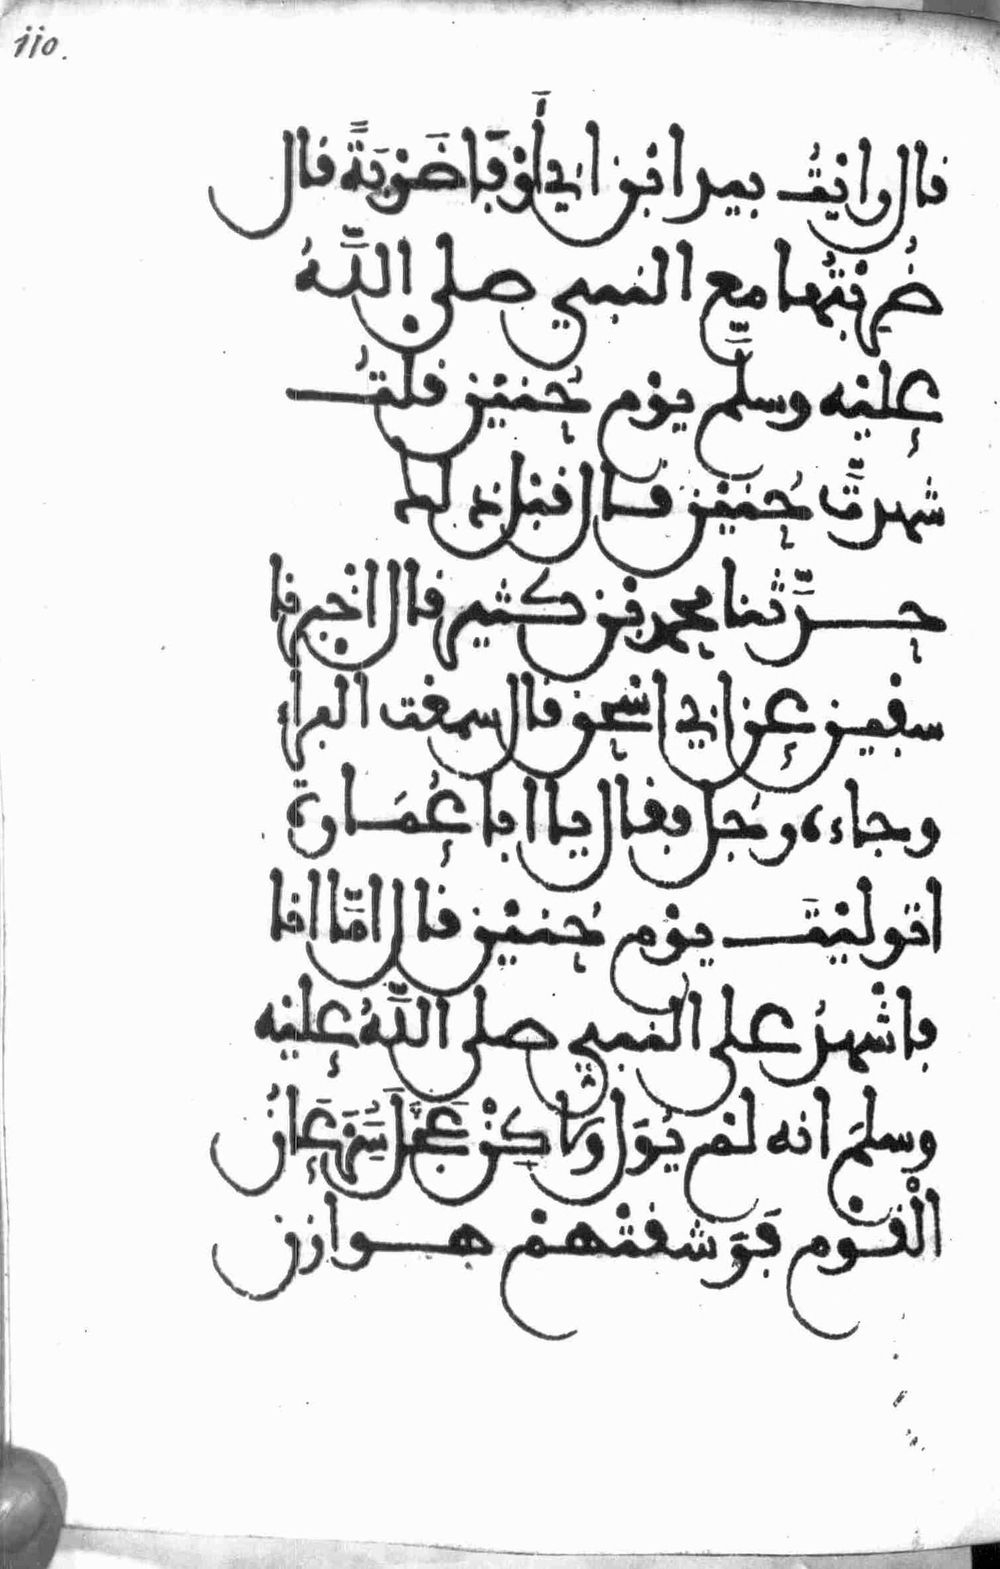 110.
قال رايتُ بيد ابن ابي أوْفَا ضَرْبَةً قال
ضُرِبْتُها مع النبيي صلى اللَّهُ
عليْه وسلَّم يوْم حُنيْن قلتُ
شهدتَّ حُنيْن قال قبْل ذلك
حدَّثنا محمد بن كثير قال اخْبرنا
سفيٰن عن ابي اسْحٰق قال سمعْت البراء
وجاءه رجُل فقال يا ابا عُمَارة
اتوليْتَ يوْم حُنيْن قال امَّا انا
فاشْهدُ على النبيي صلى اللَّهُ عليْه
وسلمَ انه لمْ يُوَلِّ ولاكِنْ عَجَّلَ سَرَعَانُ
الْقوْم فَرَشقتْهمْ هوازن